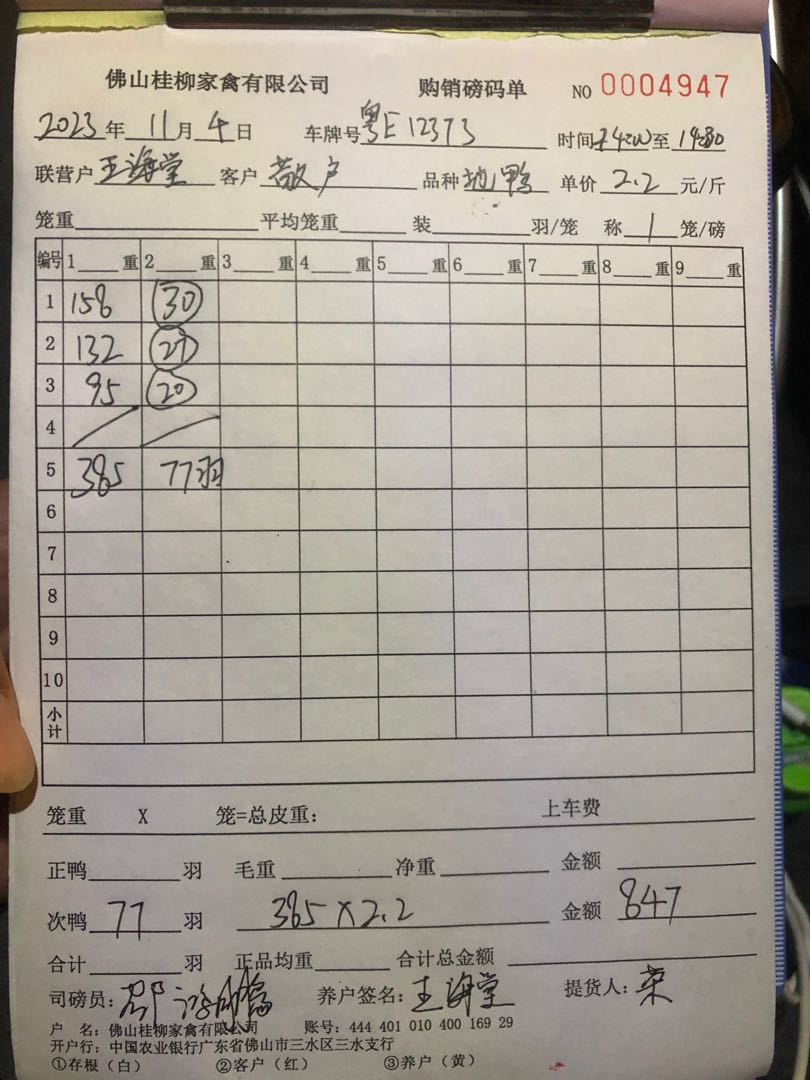 佛山桂柳家禽有限公司 购销磅码单 NO 0004947
2023年 11月 4日 车牌号 粤E12373 时间 至 14:30
联营户 王海堂 客户 散户 品种 地鸭 单价 2.2 元/斤
笼重 平均笼重 装 羽/笼 称 1 笼/磅
编号 1 重 2 重 3 重 4 重 5 重 6 重 7 重 8 重 9 重
1 158 30
2 132 27
3 95 20
4
5 385 77羽
6
7
8
9
10
小计
笼重 X 笼=总皮重: 上车费
正鸭 羽 毛重 净重 金额
次鸭 77 羽 385×2.2 金额 847
合计 羽 正品均重 合计总金额
司磅员: 养户签名: 王海堂 提货人: 荣
户 名: 佛山桂柳家禽有限公司 账号: 444 401 010 400 169 29
开户行: 中国农业银行广东省佛山市三水区三水支行
①存根(白) ②客户(红) ③养户(黄)